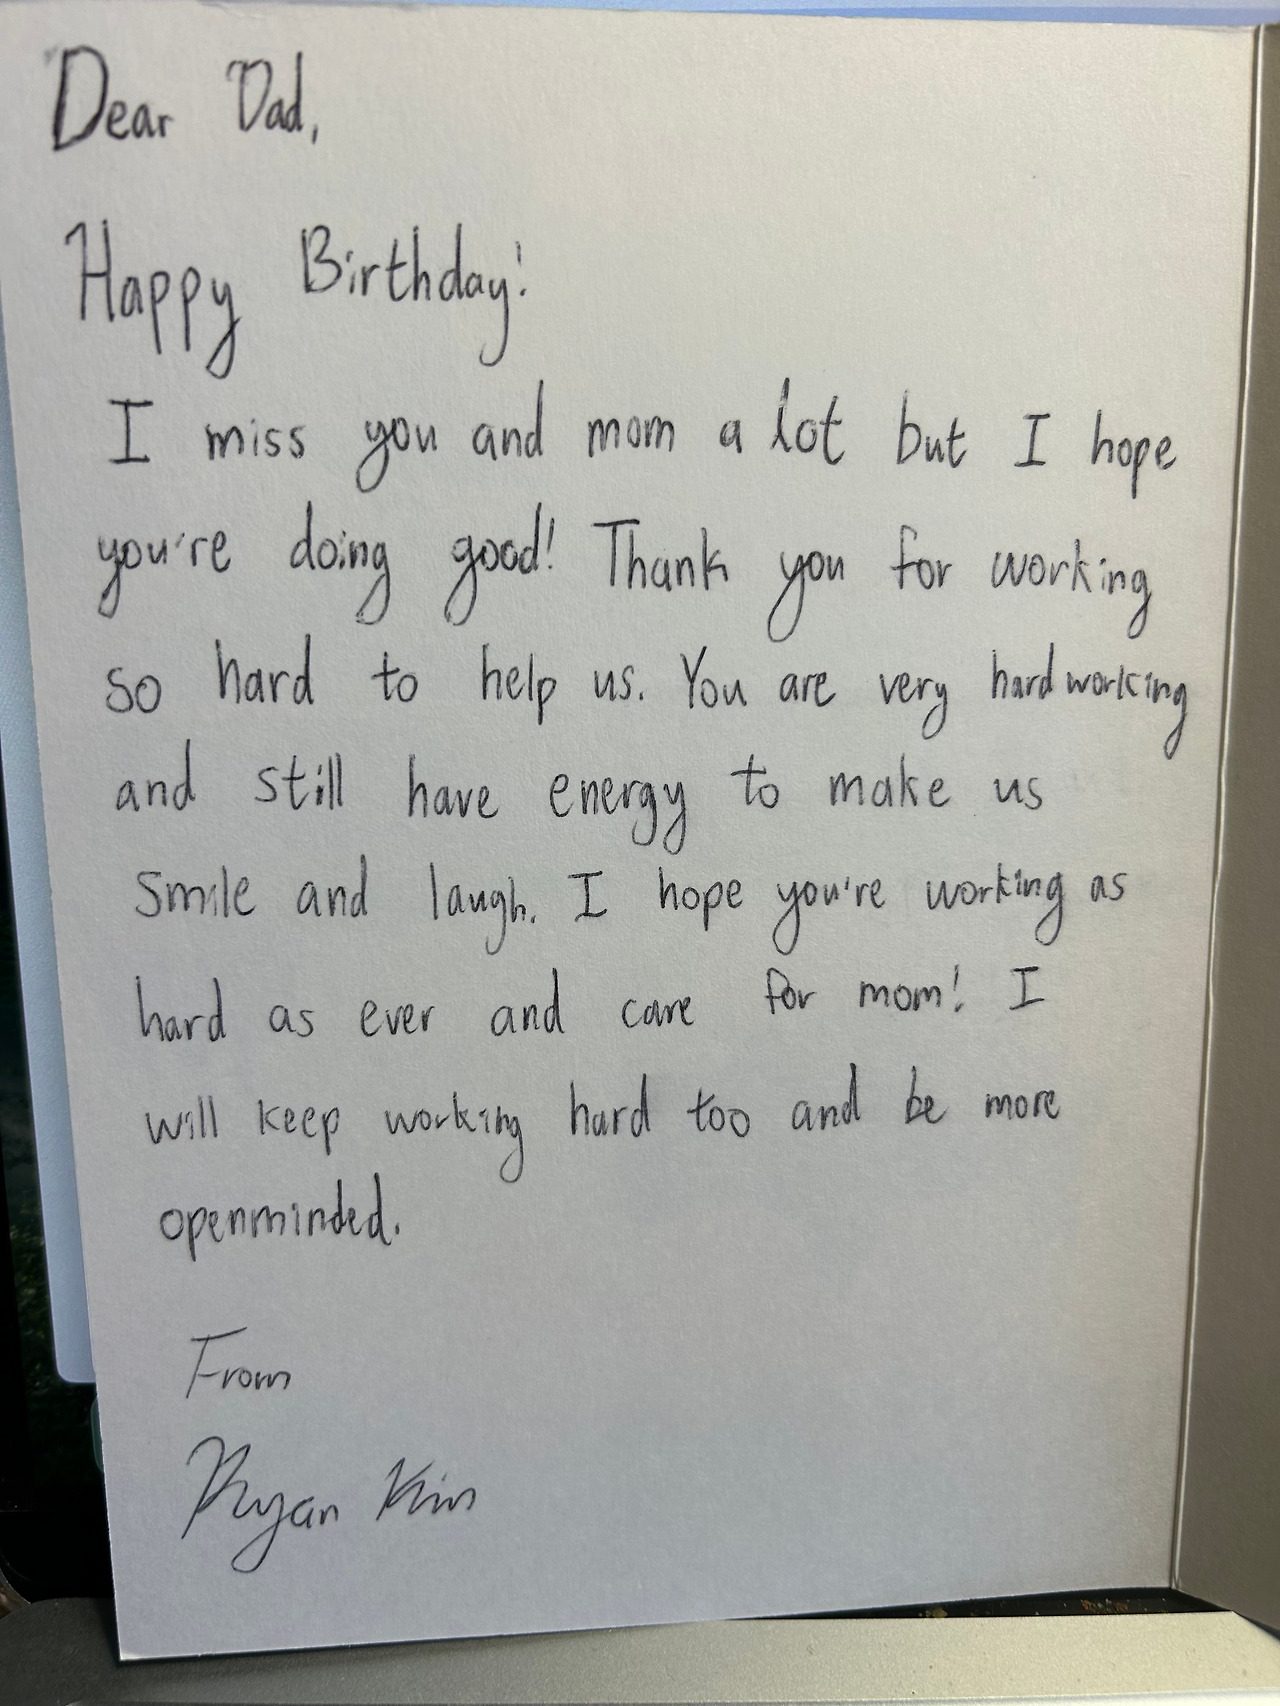 Dear Dad,
Happy Birthday!
I miss you and mom a lot but I hope
you're doing good! Thank you for working
so hard to help us. You are very hardworking
and still have energy to make us
smile and laugh. I hope you're working as
hard as ever and care for mom! I
will keep working hard too and be more
openminded.
From
Ryan Kim